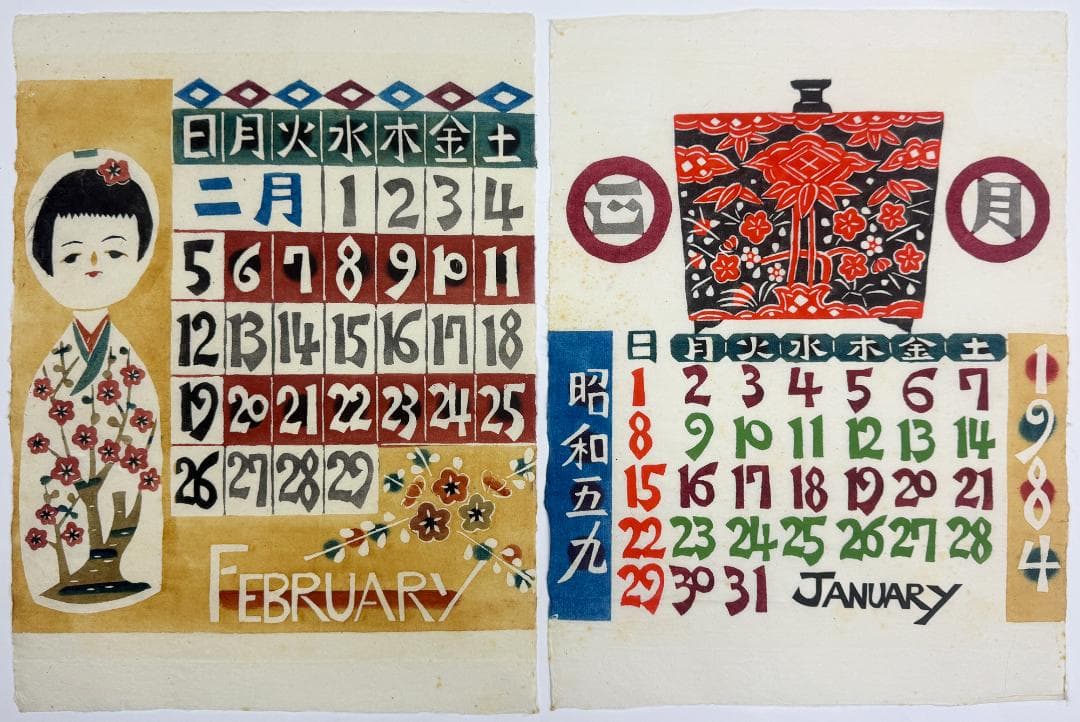 日 月 火 水 木 金 土
二月 1 2 3 4
5 6 7 8 9 10 11
12 13 14 15 16 17 18
19 20 21 22 23 24 25
26 27 28 29
FEBRUARY
正 月
昭和五九
日 月 火 水 木 金 土
1 2 3 4 5 6 7
8 9 10 11 12 13 14
15 16 17 18 19 20 21
22 23 24 25 26 27 28
29 30 31
JANUARY
1984